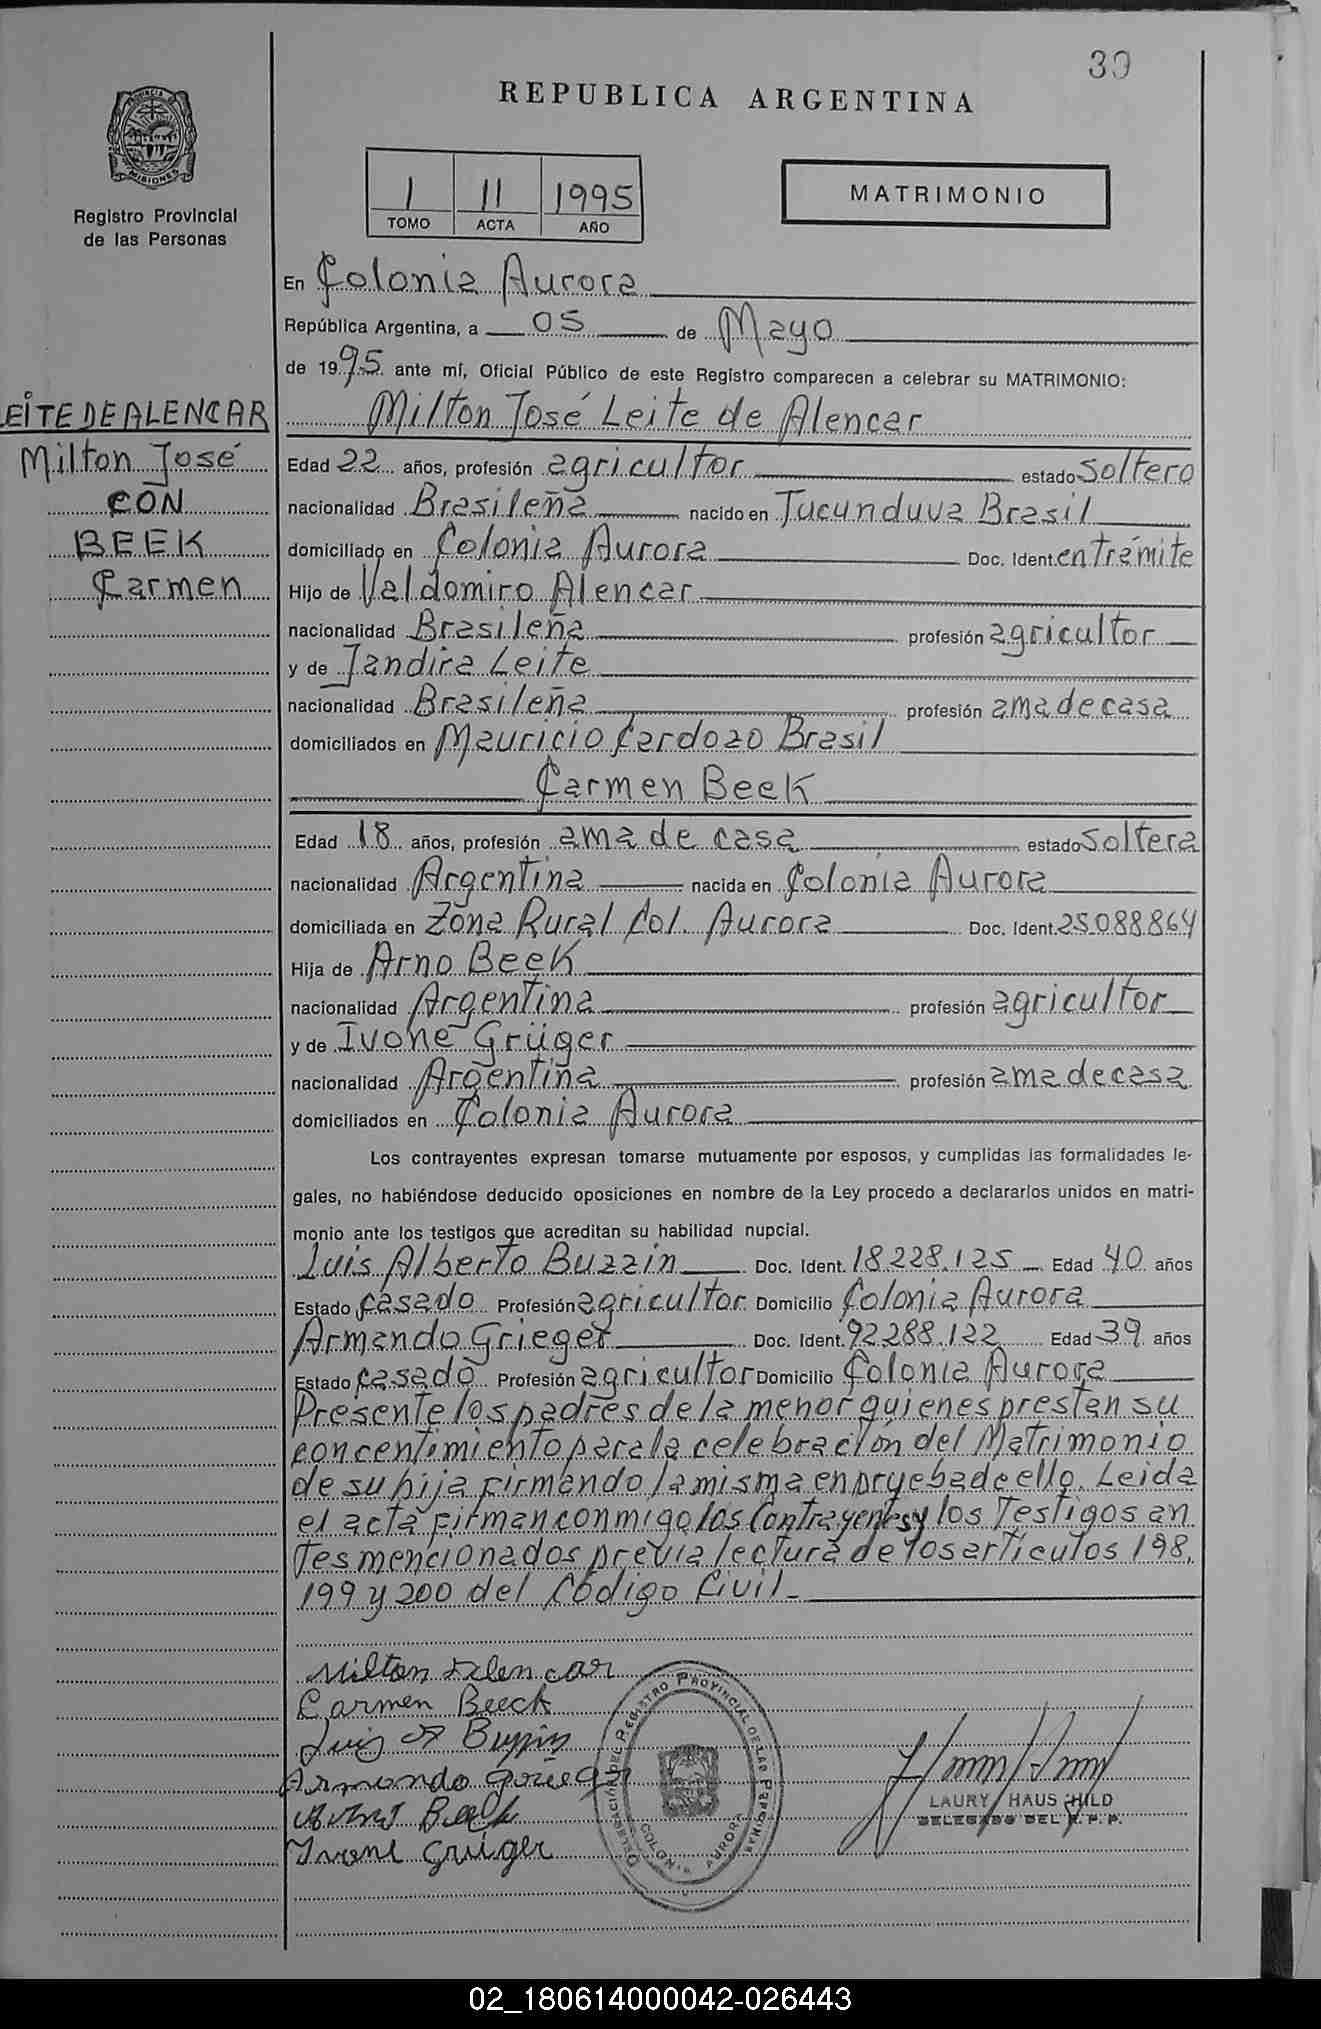 30
REPUBLICA ARGENTINA
PROVINCIA DE MISIONES
Registro Provincial
de las Personas
1 11 1995
TOMO ACTA AÑO
MATRIMONIO
En Colonia Aurora
República Argentina, a 05 de Mayo
de 1995 ante mí, Oficial Público de este Registro comparecen a celebrar su MATRIMONIO:
LEITE DE ALENCAR
Milton José
CON
BEEK
Carmen
Milton José Leite de Alencar
Edad 22 años, profesión agricultor estado soltero
nacionalidad Brasileña nacido en Tucunduva Brasil
domiciliado en Colonia Aurora Doc. Ident. en trámite
Hijo de Valdomiro Alencar
nacionalidad Brasileña profesión agricultor
y de Jandira Leite
nacionalidad Brasileña profesión ama de casa
domiciliados en Mauricio Cardozo Brasil
Carmen Beek
Edad 18 años, profesión ama de casa estado soltera
nacionalidad Argentina nacida en Colonia Aurora
domiciliada en Zona Rural Col. Aurora Doc. Ident. 25.088.864
Hija de Arno Beek
nacionalidad Argentina profesión agricultor
y de Ivone Grüger
nacionalidad Argentina profesión ama de casa
domiciliados en Colonia Aurora
Los contrayentes expresan tomarse mutuamente por esposos, y cumplidas las formalidades le-
gales, no habiéndose deducido oposiciones en nombre de la Ley procedo a declararlos unidos en matri-
monio ante los testigos que acreditan su habilidad nupcial.
Luis Alberto Buzzin Doc. Ident. 18.228.125 Edad 40 años
Estado casado Profesión agricultor Domicilio Colonia Aurora
Armando Grieger Doc. Ident. 92.288.122 Edad 39 años
Estado casado Profesión agricultor Domicilio Colonia Aurora
Presente los padres de la menor quienes prestan su
concentimiento para la celebración del Matrimonio
de su hija firmando la misma en prueba de ello. Leida
el acta firman conmigo los Contrayentes y los Testigos an
tes mencionados previa lectura de los artículos 198,
199 y 200 del Código Civil-
Milton Alencar
Carmen Beeck
Luis A Buzzin
Armando Grieger
Arno Beeck
Ivone Grüger
DELEGACIÓN DEL REGISTRO PROVINCIAL DE LAS PERSONAS
COLONIA AURORA
LAURY HAUSCHILD
DELEGADO DEL R. P. P.
02_180614000042-026443